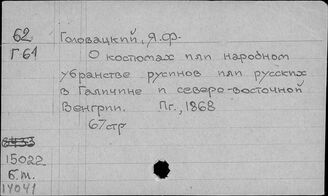 62
Г-61
Головацкий, Я.Ф.
О костюмах или народном
убранстве русинов или русских
в Галичине и северо-восточной
Венгрии. Пг., 1868
67стр
15022
Б.м.
14041